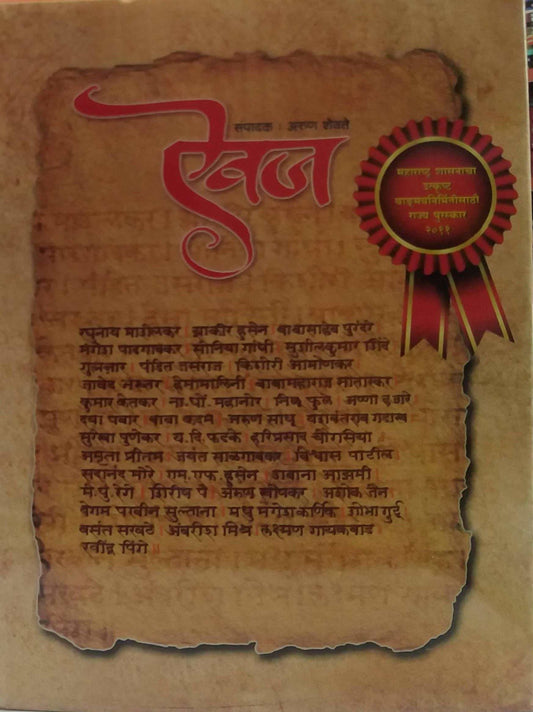 संपादक : अरुण शेवते
ऐवज
महाराष्ट्र शासनाचा
उत्कृष्ट
वाङ्मयनिर्मितीसाठी
राज्य पुरस्कार
२०११
रघुनाथ माशेलकर | झाकीर हुसेन | बाबासाहेब पुरंदरे
मंगेश पाडगावकर | सोनिया गांधी | सुशीलकुमार शिंदे
गुलज़ार | पंडित जसराज | किशोरी आमोणकर
जावेद अख्तर | हेमामालिनी | बाबामहाराज सातारकर
कुमार केतकर | ना.धों. महानोर | निळू फुले | अण्णा हजारे
दया पवार | बाबा कदम | अरुण साधू | यशवंतराव गडाख
सुरेखा पुणेकर | य.दि. फडके | हरिप्रसाद चौरासिया
अमृता प्रीतम | जयंत साळगावकर | विश्वास पाटील
सदानंद मोरे | एम.एफ. हुसेन | शबाना आझमी
मे.पुं. रेगे | शिरीष पै | अरुण खोपकर | अशोक जैन
बेगम परवीन सुल्ताना | मधु मंगेश कर्णिक | शोभा गुर्टू
वसंत सरवटे | अंबरीश मिश्र | लक्ष्मण गायकवाड
रवींद्र पिंगे ॥